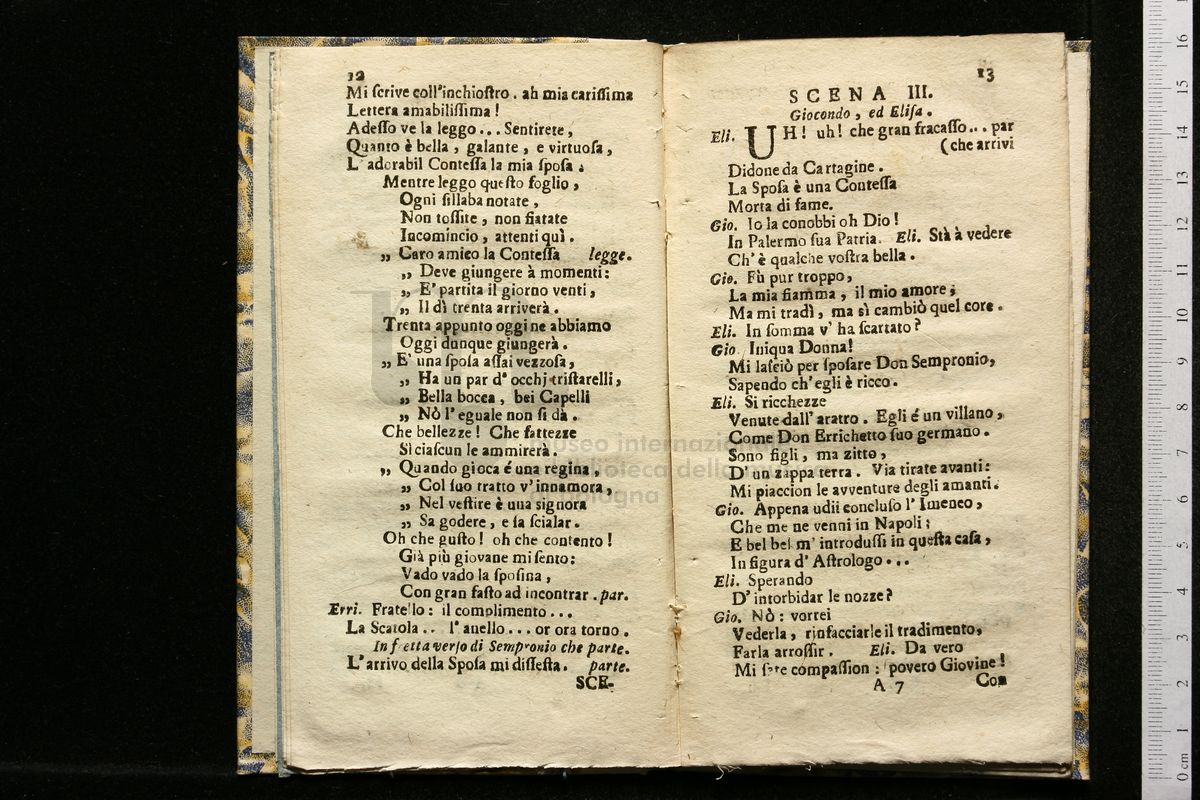 12
Mi ſcrive coll'inchioſtro. ah mia cariſſima
Lettera amabiliſſima!
Adeſſo ve la leggo... Sentirete,
Quanto è bella, galante, e virtuoſa,
L'adorabil Conteſſa la mia ſpoſa.
Mentre leggo queſto foglio,
Ogni ſillaba notate,
Non toſſite, non fiatate
Incomincio, attenti quì.
„ Caro amico la Conteſſa legge.
„ Deve giungere à momenti:
„ E' partita il giorno venti,
„ Il dì trenta arriverà.
Trenta appunto oggi ne abbiamo
Oggi dunque giungerà.
„ E' una ſpoſa aſſai vezzoſa,
„ Ha un par d'occhj triſtarelli,
„ Bella bocca, bei Capelli
„ Nò l'eguale non ſi dà.
Che bellezze! Che fattezze
Sì ciaſcun le ammirerà.
„ Quando gioca é una regina,
„ Col ſuo tratto v'innamora,
„ Nel veſtire è una ſignora
„ Sa godere, e ſa ſcialar.
Oh che guſto! oh che contento!
Già più giovane mi ſento:
Vado vado la ſpoſina,
Con gran faſto ad incontrar. par.
Erri. Fratello: il complimento...
La Scatola.. l'anello... or ora torno.
In fretta verſo di Sempronio che parte.
L'arrivo della Spoſa mi diſſeſta. parte.
SCE-
13
SCENA III.
Giocondo, ed Eliſa.
Eli. UH! uh! che gran fracaſſo... par
(che arrivi
Didone da Cartagine.
La Spoſa è una Conteſſa
Morta di fame.
Gio. Io la conobbi oh Dio!
In Palermo ſua Patria. Eli. Stà à vedere
Ch'è qualche voſtra bella.
Gio. Fù pur troppo,
La mia fiamma, il mio amore;
Ma mi tradì, ma sì cambiò quel core.
Eli. In ſomma v'ha ſcartato?
Gio. Iniqua Donna!
Mi laſciò per ſpoſare Don Sempronio,
Sapendo ch'egli è ricco.
Eli. Si ricchezze
Venute dall'aratro. Egli é un villano,
Come Don Errichetto ſuo germano.
Sono figli, ma zitto,
D'un zappa terra. Via tirate avanti:
Mi piaccion le avventure degli amanti.
Gio. Appena udii concluſo l'Imeneo,
Che me ne venni in Napoli;
E bel bel m'introduſſi in queſta caſa,
In figura d'Aſtrologo...
Eli. Sperando
D'intorbidar le nozze?
Gio. Nò: vorrei
Vederla, rinfacciarle il tradimento,
Farla arroſſir. Eli. Da vero
Mi fate compaſſion: povero Giovine!
A 7 Con
museo internazionale
biblioteca della musica
di bologna
0 cm 1 2 3 4 5 6 7 8 9 10 11 12 13 14 15 16